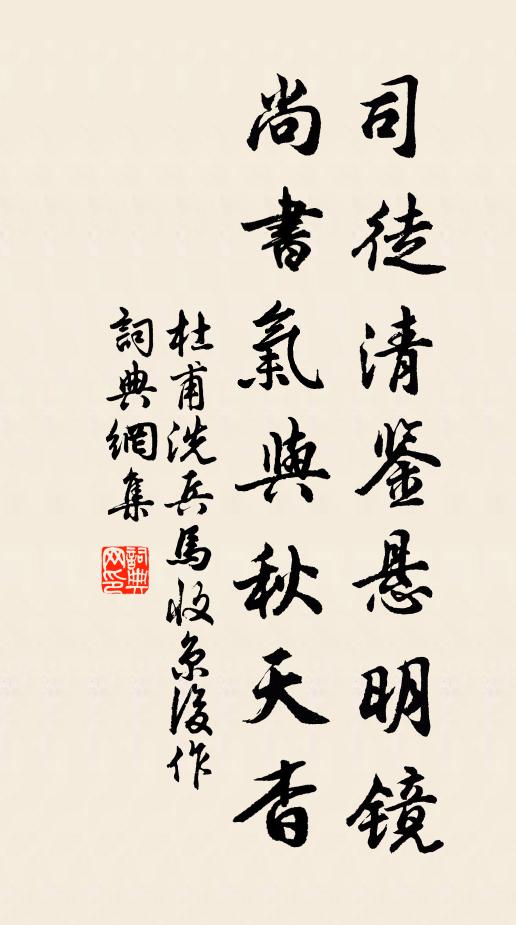 司徒清鉴悬明鏡
尚書氣與秋天杳
杜甫洗兵馬收京後作
詞典網集
詞典
网印